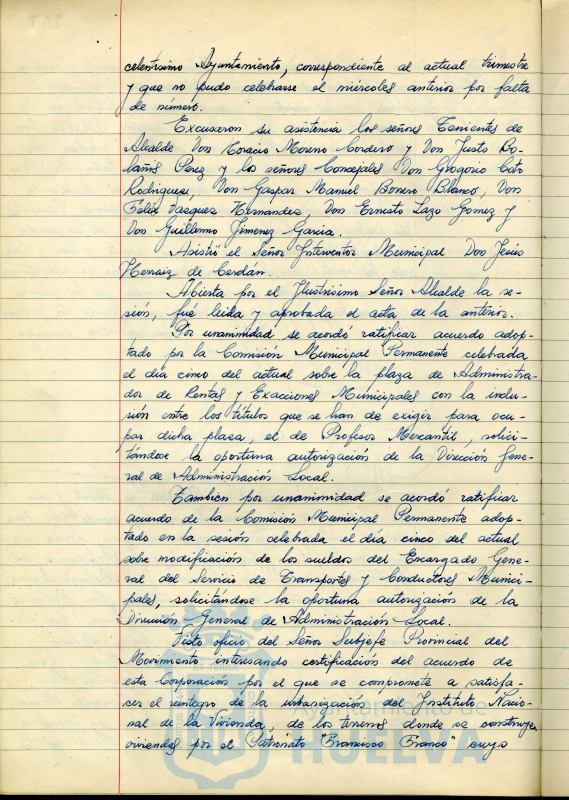 celentísimo Ayuntamiento, correspondiente al actual trimestre
y que no pudo celebrarse el miércoles anterior por falta
de número.
Excusaron su asistencia los señores Tenientes de
Alcalde Don Horacio Moreno Cordero y Don Justo Bo-
lañis Perez y los señores Concejales Don Gregorio Coto
Rodriguese, Don Gaspar Manuel Bonero Blanco, Don
Felix Vasques Hernandes, Don Ernesto Lazo Gomez y
Don Guillermo Jimenez Garcia.
Asistió el Señor Interventor Municipal Don Jesús
Henaiz de Cerdán.
Abierta por el Ilustrísimo Señor Alcalde la se-
sión, fue leída y aprobada el acta de la anterior.
Por unanimidad se acordó ratificar acuerdo adop-
tado por la Comisión Municipal Permanente celebrada
el día cinco del actual sobre la plaza de Administra-
dor de Rentas y Exacciones Municipales con la inclu-
sión entre los títulos que se han de exigir para ocu-
par dicha plaza, el de Profesor Mercantil, solici-
tándose la oportuna autorización de la Dirección Gene-
ral de Administración Local.
También por unanimidad se acordó ratificar
acuerdo de la Comisión Municipal Permanente adop-
tado en la sesión celebrada el día cinco del actual
sobre modificación de los sueldos del Encargado Gene-
ral del Servicio de Transportes y Conductores Munici-
pales, solicitándose la oportuna autorización de la
Dirección General de Administración Local.
Visto oficio del Señor Subjefe Provincial del
Movimiento interesando certificación del acuerdo de
esta Corporación por el que se compromete a satisfa-
cer el reintegro de la urbanización del Instituto Nacio-
nal de la Vivienda, de los terrenos donde se construyen
viviendas por el Patronato "Francisco Franco" cuyo
Ayuntamiento de
HUELVA